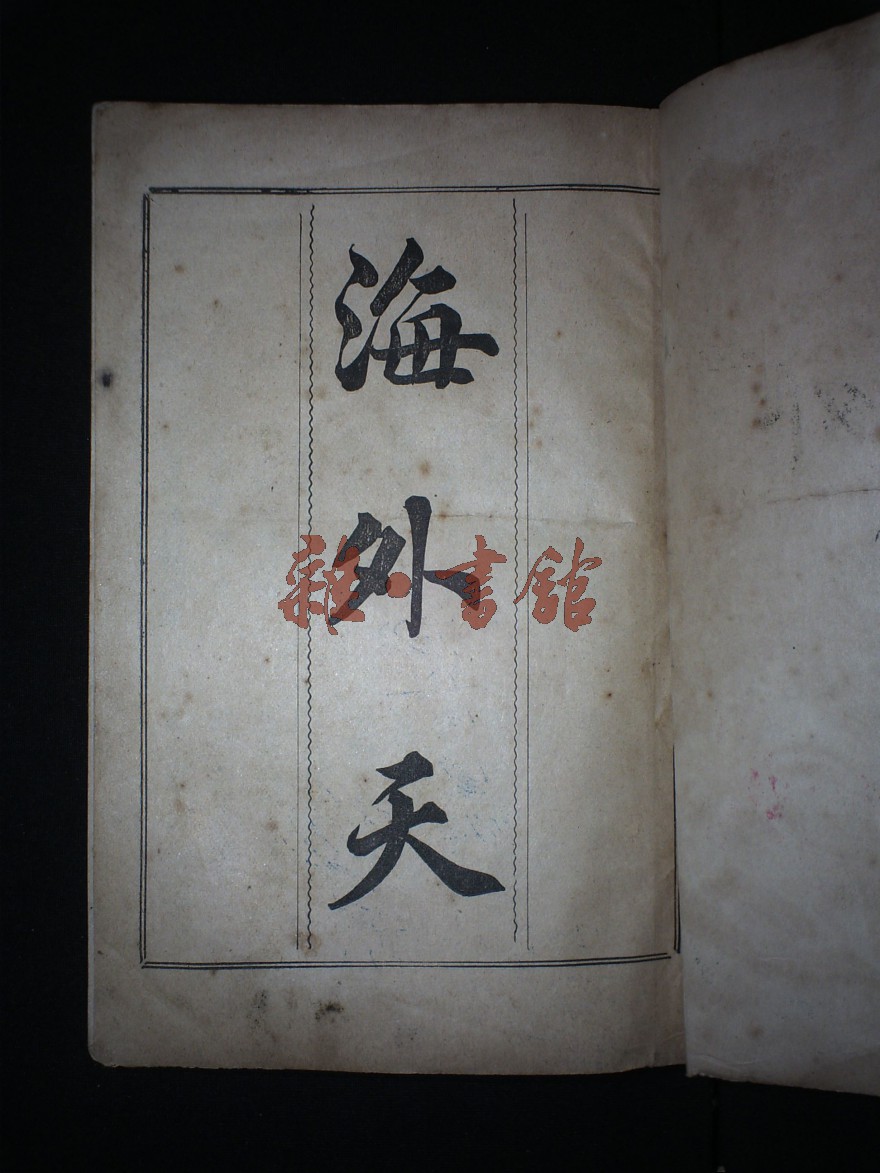 海外天
雜·書館